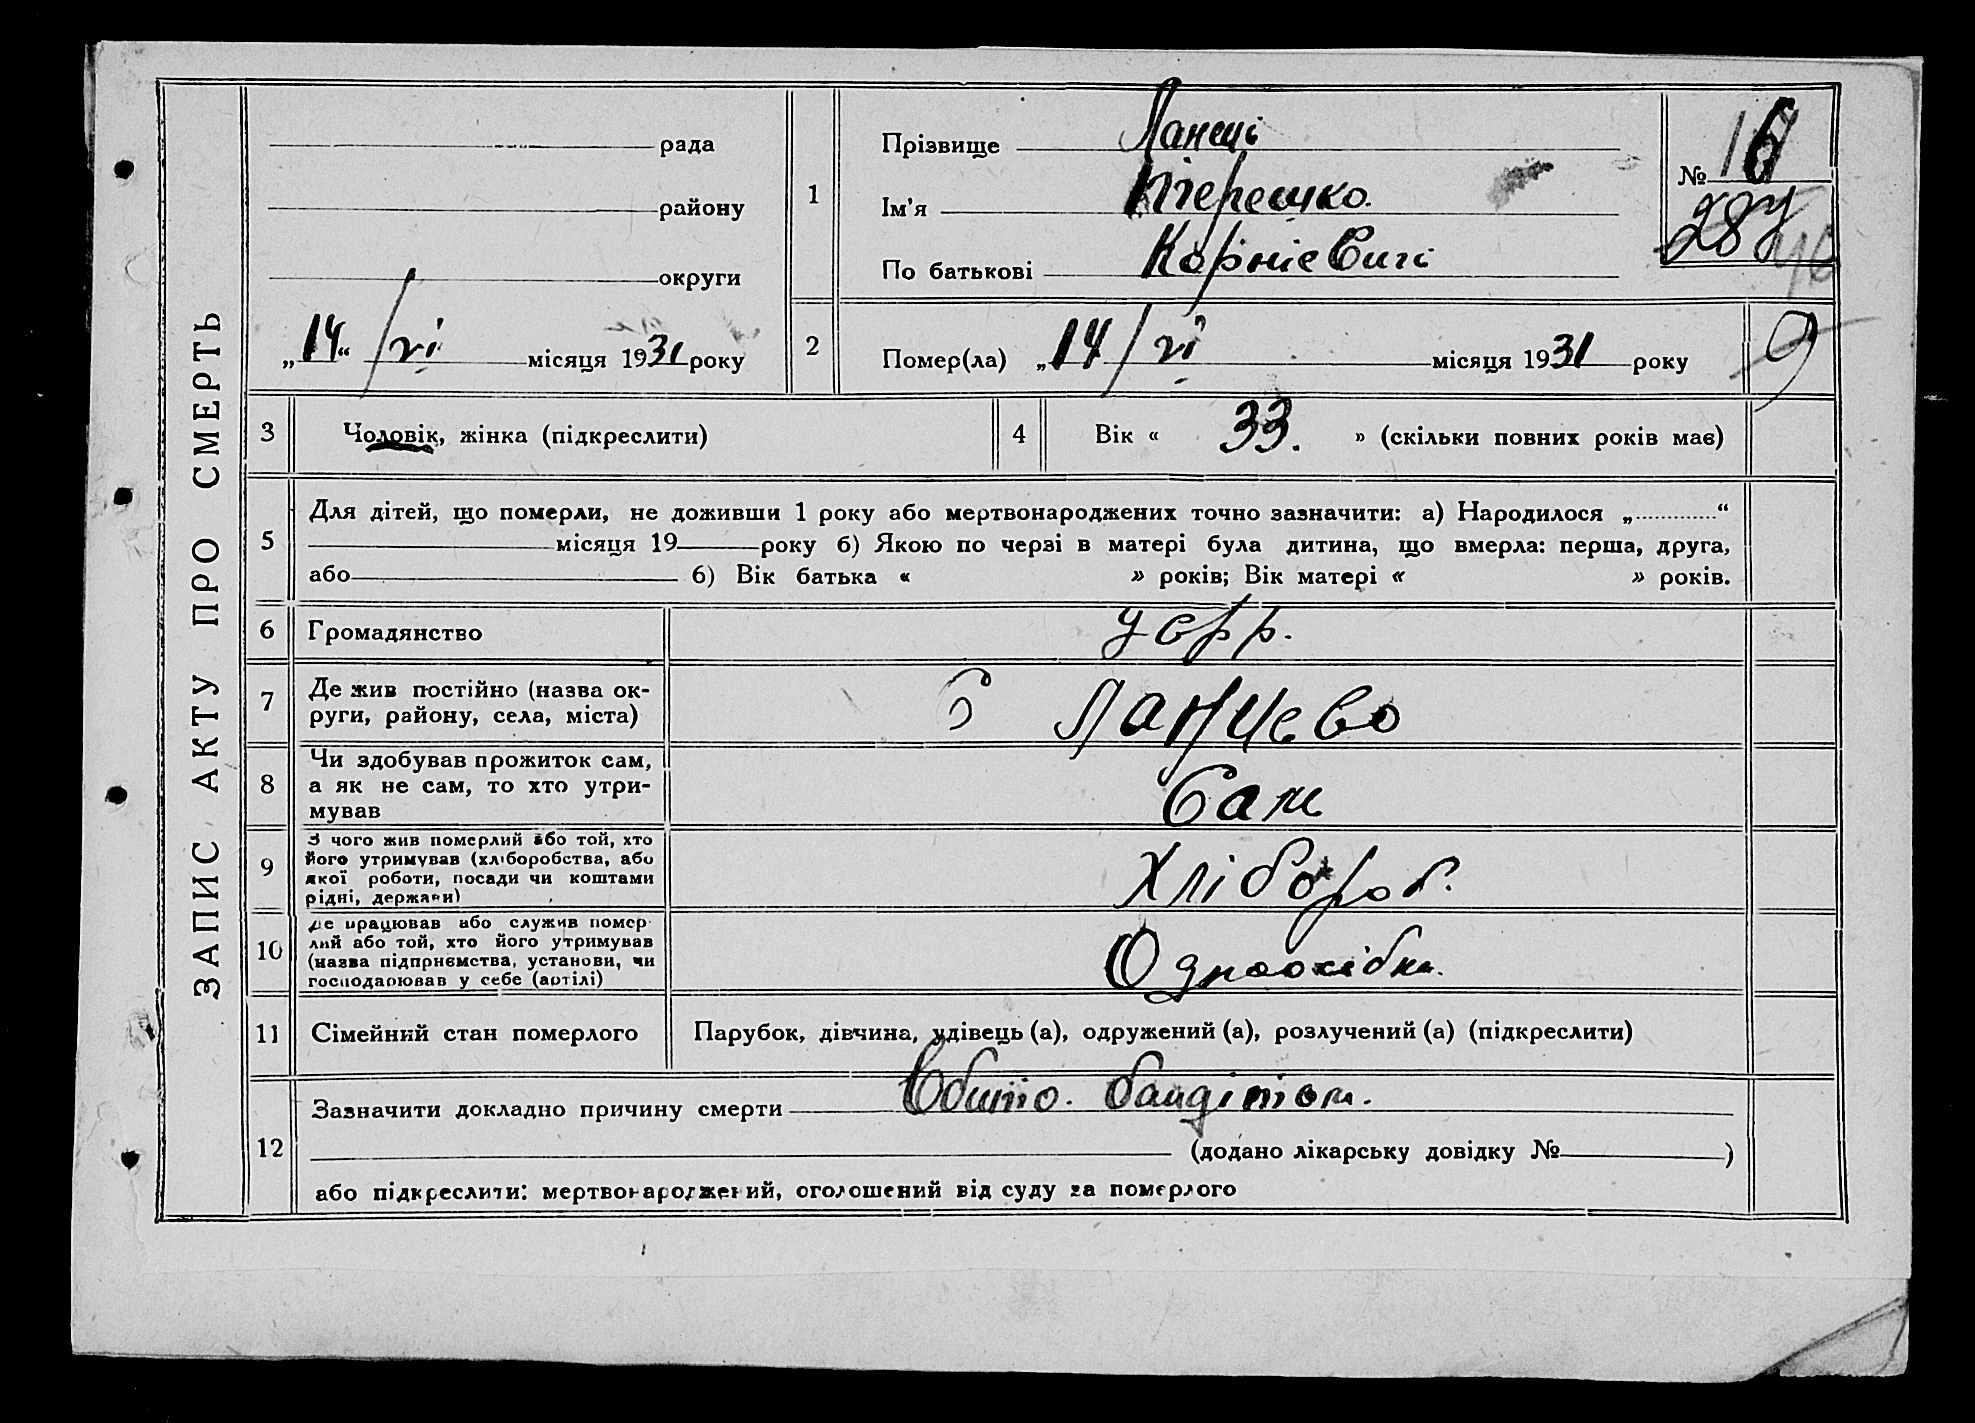 ЗАПИС АКТУ ПРО СМЕРТЬ
рада
району
округи
„14“ / vi місяця 1931 року
1
Прізвище
Ім'я Терешко
По батькові Корнієвич
№ 16
287
46
2
Помер(ла) „14 / vi місяця 1931 року
9
3
Чоловік, жінка (підкреслити)
4
Вік « 33. » (скільки повних років має)
5
Для дітей, що померли, не доживши 1 року або мертвонароджених точно зазначити: а) Народилося „............“
місяця 19 року б) Якою по черзі в матері була дитина, що вмерла: перша, друга,
або б) Вік батька « » років; Вік матері « » років.
6
Громадянство усрр.
7
Де жив постійно (назва ок-
руги, району, села, міста)
с Ланцево
8
Чи здобував прожиток сам,
а як не сам, то хто утри-
мував
Сам
9
З чого жив померлий або той, хто
його утримував (хліборобства, або
якої роботи, посади чи коштами
рідні, держави)
Хлібороб.
10
Де працював або служив помер-
лий або той, хто його утримував
(назва підприємства, установи, чи
господарював у себе (артілі)
11
Сімейний стан померлого
Парубок, дівчина, удівець (а), одружений (а), розлучений (а) (підкреслити)
12
Зазначити докладно причину смерти Вбито. бандітом.
(додано лікарську довідку № )
або підкреслити: мертвонароджений, оголошений від суду за померлого